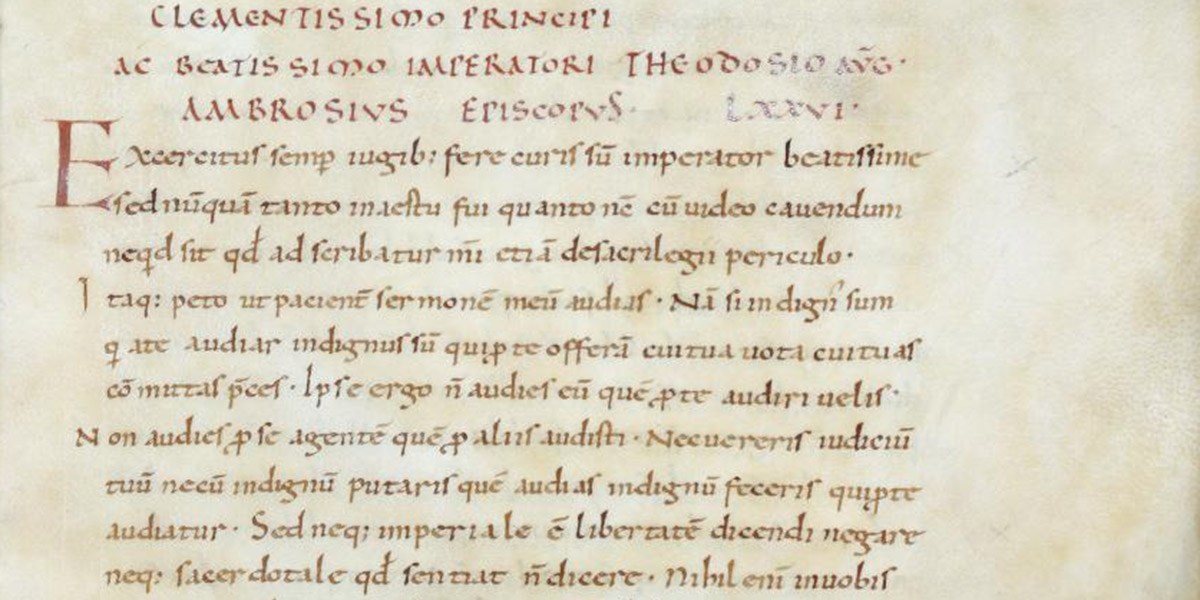 CLEMENTISSIMO PRINCIPI
AC BEATISSIMO IMPERATORI THEODOSIO AVG̅·
AMBROSIVS EPISCOPVS· LXXVI·
Excercitus semp̲ iugib; fere curis sū imperator beatissime
sed nūquā tanto inaestu fui quanto nc̄ cū uideo cauendum
neq̲d sit qđ adscribatur m̄i etiā desacrilegii periculo·
Itaq; peto ut pacient̄ sermonē meū audias· Nā si indign᾿ sum
q̲ ate audiar indignus sū quip̲te offerā cuitua uota cuituas
cōmittas p̄ces· Ipse ergo n̄ audies eū quē ꝓte audiri uelis·
Non audies ꝓse agentē quē ꝓ aliis audisti· Necuereris iudiciū
tuū necū indignū putaris quē audias indignū feceris quip̲te
audiatur· Sed neq; imperiale ē libertatē dicendi negare
neq; sacerdotale qđ sentiat n̄ dicere· Nihil enī inuobis